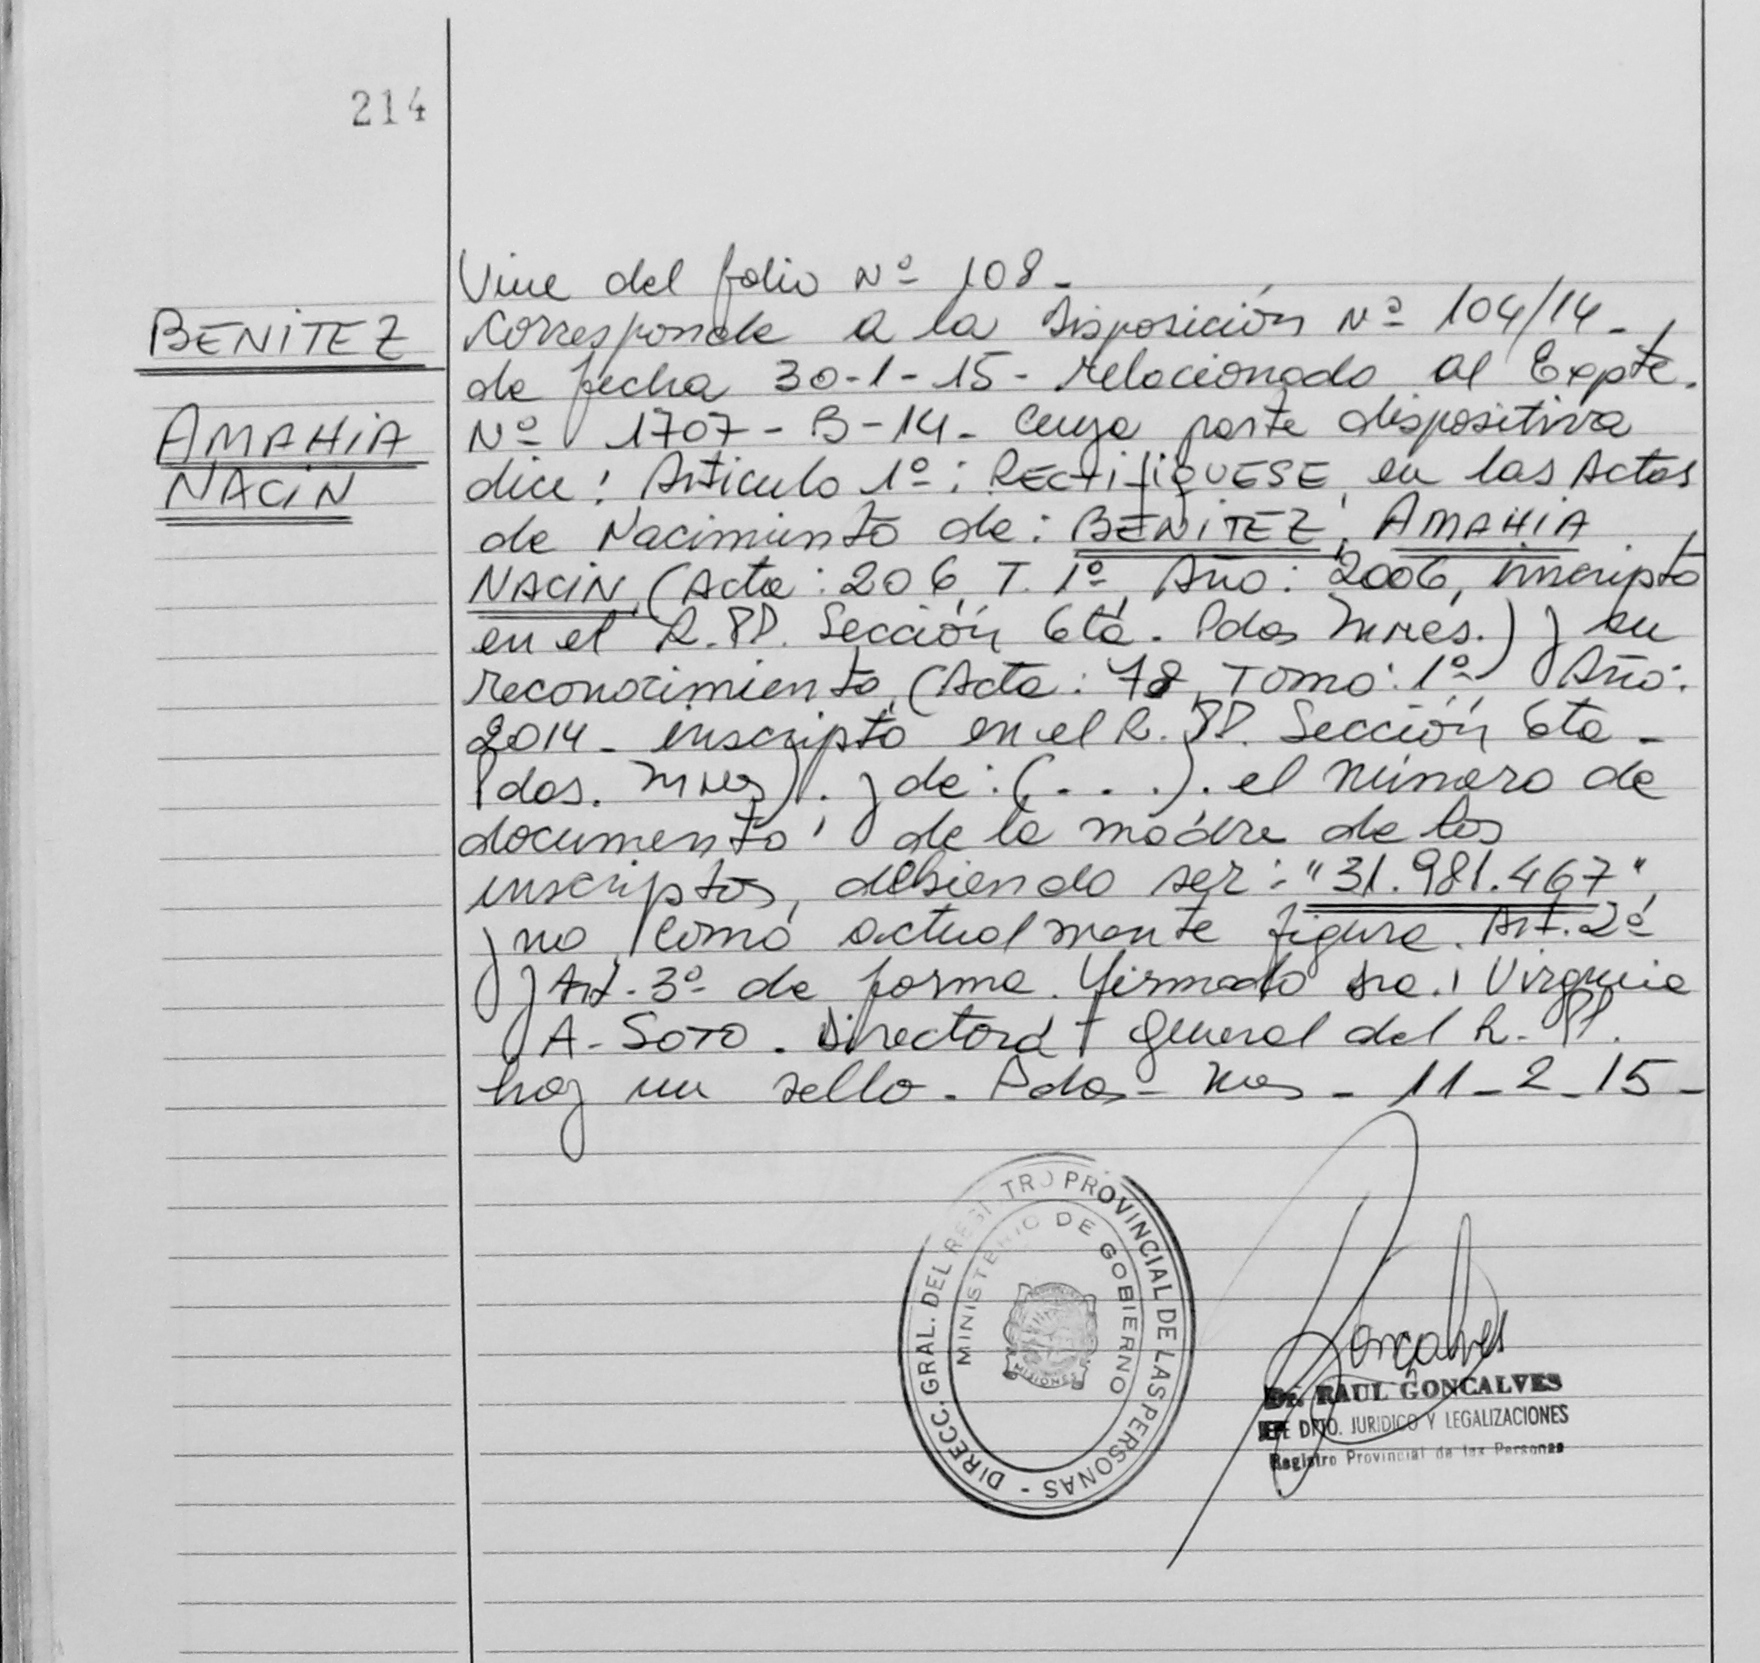 214
Vine del folio Nº 108-
BENITEZ
Corresponde a la Disposición Nº 104/14-
de fecha 30-1-15- relacionado al Expte.
AMAHIA
Nº 1707-B-14- Cuya parte dispositiva
NACIN
dice: Articulo 1º: RECTIFIQUESE, en las Actas
de Nacimiento de: BENITEZ, AMAHIA
NACIN, (Acta: 206, T. 1º, Año: 2006, inscripto
en el R.PP. Sección 6ta. Pdas Mnes.) y su
reconocimiento, (Acta: 78, Tomo: 1º, Año:
2014- inscripto en el R.PP. Sección 6ta-
Pdas. Mnes). y de: (. . .). el número de
documento de la madre de los
inscriptos, debiendo ser: "31.981.467"
y no como actualmente figura. Art. 2º
y Art. 3º de forma. Firmado Sra. Virginia
A- SOTO. Directora General del R. PP.
hay un sello. Pdas- Mnes- 11-2-15-
DIRECC. GRAL. DEL REGISTRO PROVINCIAL DE LAS PERSONAS -
MINISTERIO DE GOBIERNO
MISIONES
Gonçalves
Dr. RAUL GONCALVES
JEFE DPTO. JURIDICO Y LEGALIZACIONES
Registro Provincial de las Personas